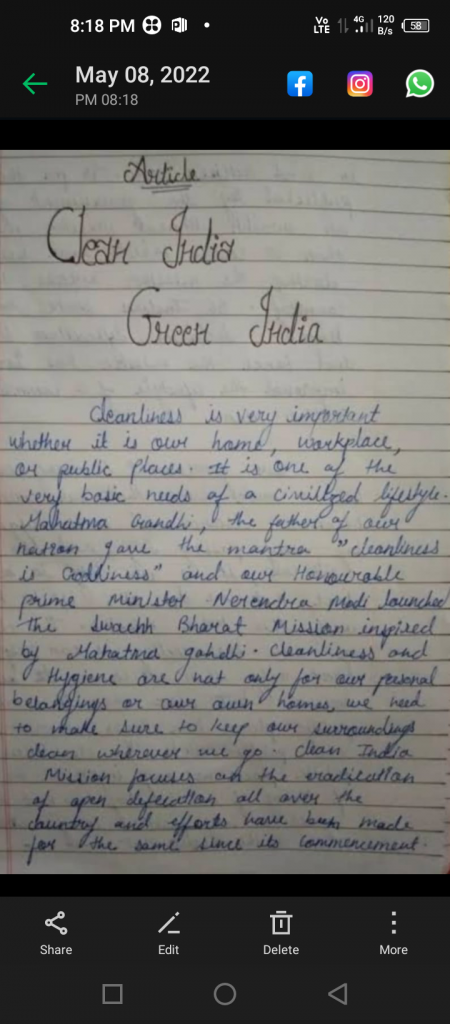 8:18 PM
Vo LTE 4G 120 B/s 58
May 08, 2022
PM 08:18
Article
Clean India
Green India
Cleanliness is very important
whether it is our home, workplace,
or public places. It is one of the
very basic needs of a civilized lifestyle.
Mahatma Gandhi, the father of our
nation gave the mantra "cleanliness
is Goddiness" and our Honourable
prime minister Nerendra Modi launched
The Swachh Bharat Mission inspired
by Mahatma gahdhi. cleanliness and
Hygiene are not only for our pesonal
belangings or our own homes, we need
to make sure to keep our surroundings
clean wherever we go. clean India
Mission focuses on the eradication
of open defecation all over the
country and efforts have been made
for the same since its commencement.
Share Edit Delete More